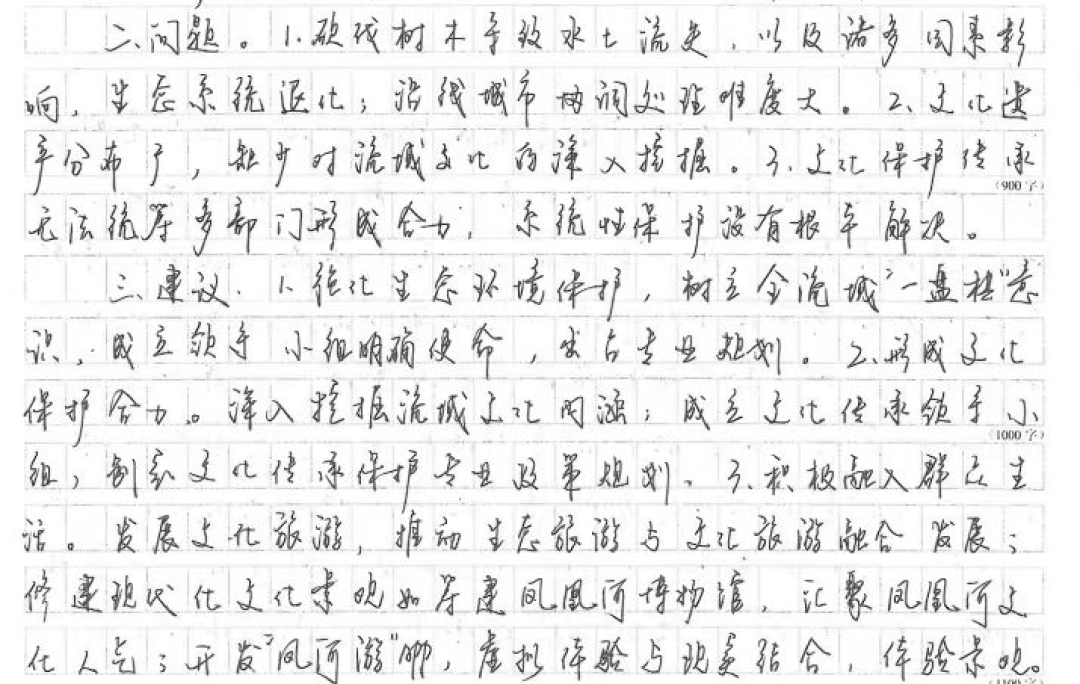 二、问题。1.砍伐树木导致水土流失，以及诸多因素影
响，生态系统退化；沿线城市协调处理难度大。2.文化遗
产分布广，缺少对流域文化的深入挖掘。3.文化保护传承
(900字)
无法统筹多部门形成合力，系统性保护没有根本解决。
三、建议。1.强化生态环境保护，树立全流域"一盘棋"意
识，成立领导小组明确使命，出台专业规划。2.形成文化
保护合力。深入挖掘流域文化内涵；成立文化传承领导小
(1000字)
组，制定文化传承保护专业政策规划。3.积极融入群众生
活。发展文化旅游，推动生态旅游与文化旅游融合发展；
修建现代化文化景观如筹建凤凰河博物馆，汇聚凤凰河文
化人气；开发"凤河游"，虚拟体验与现实结合，体验景观。
(1100字)